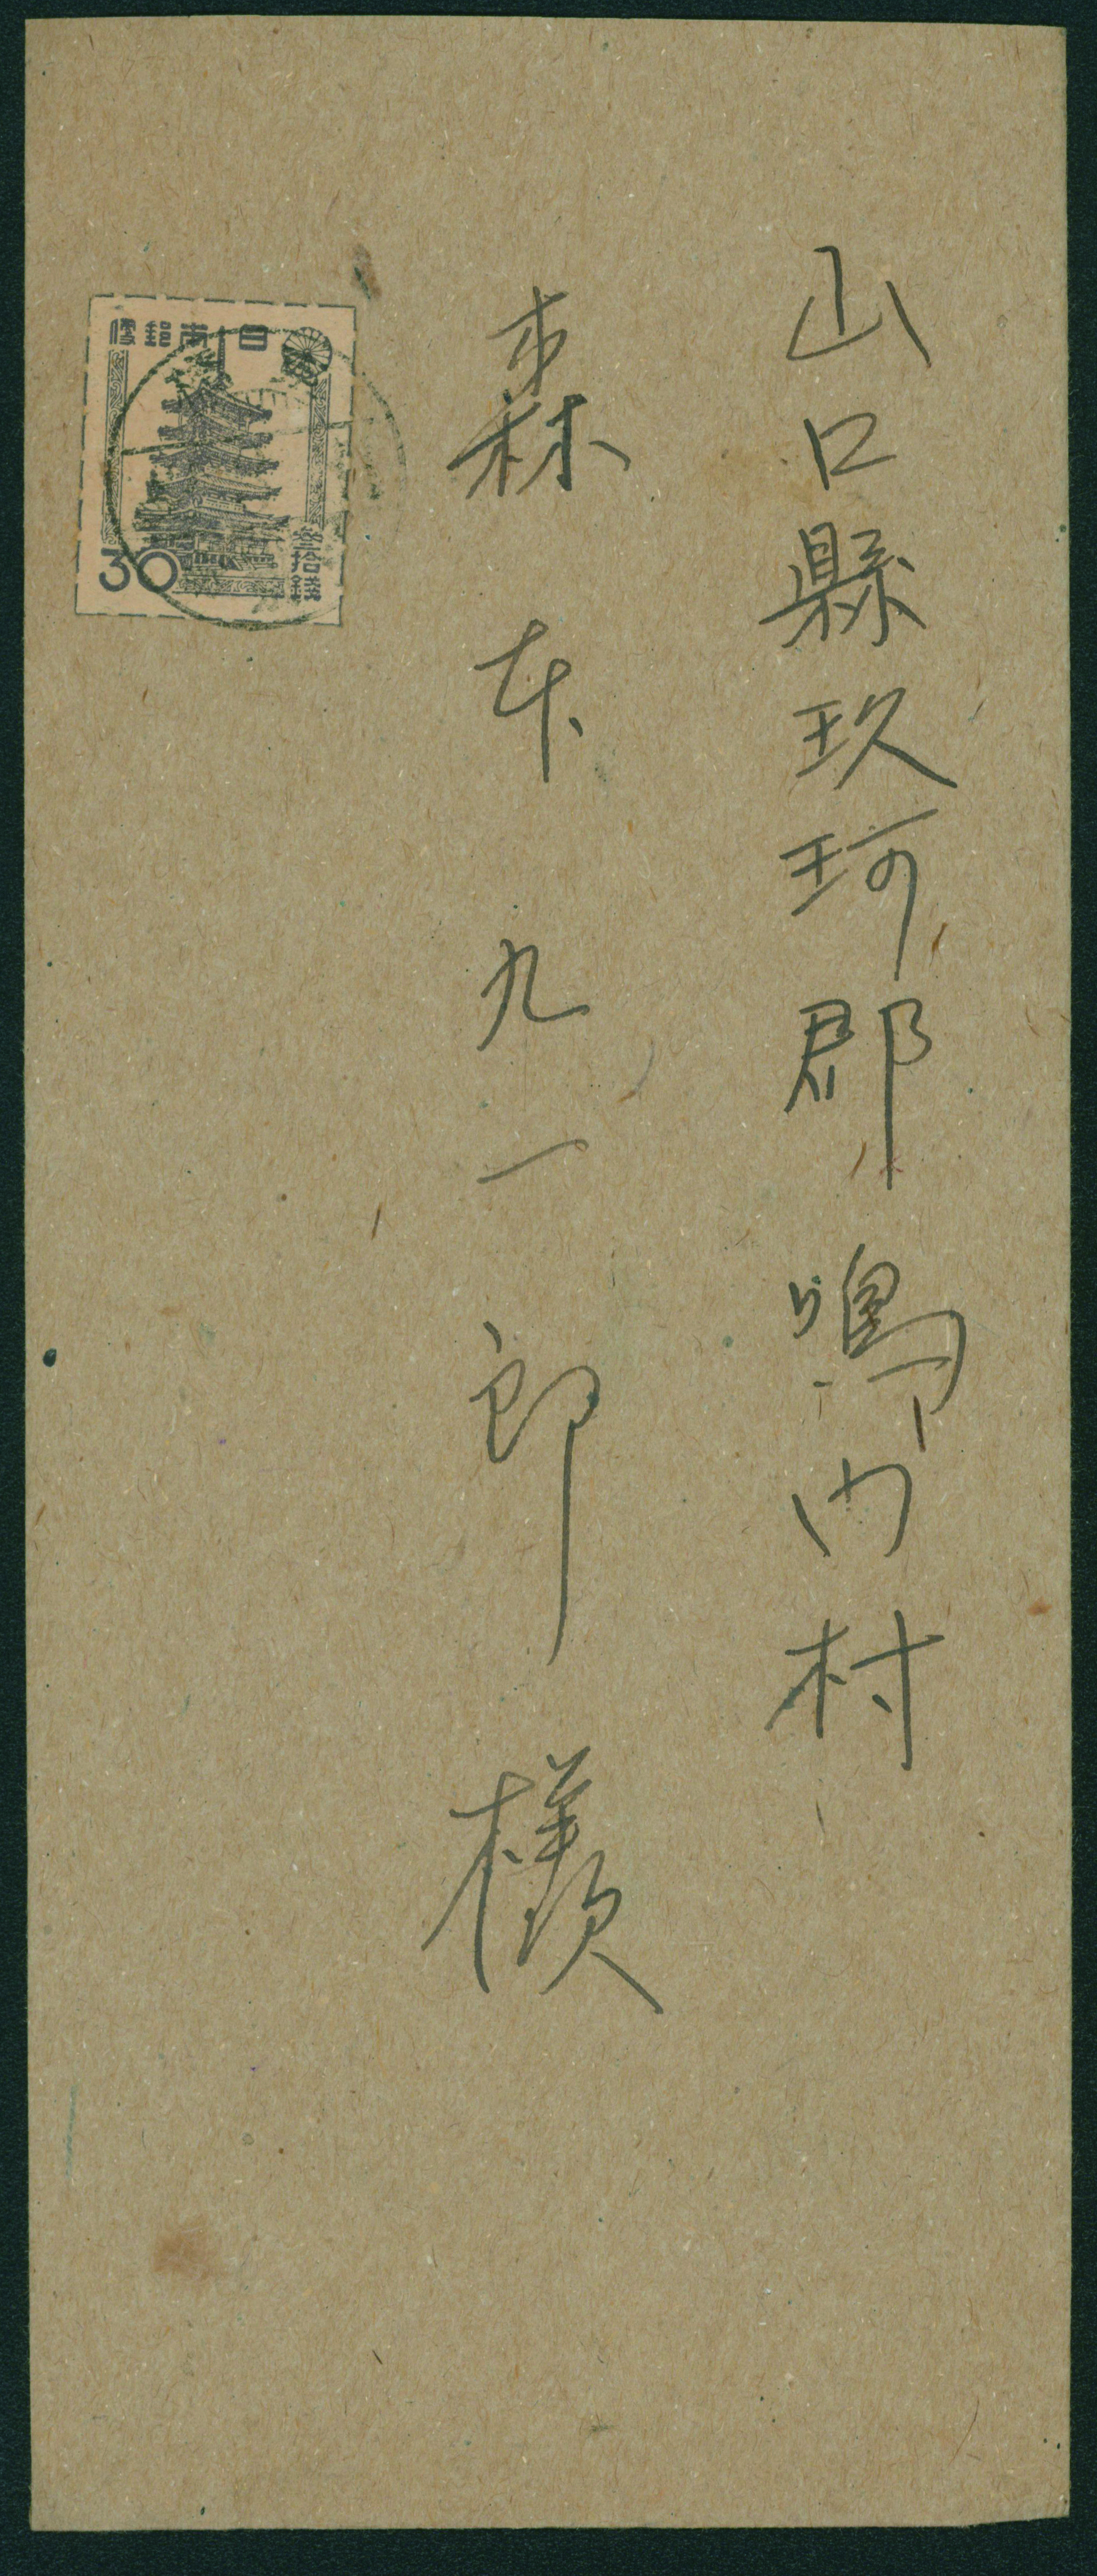 山口縣玖珂郡鳴門村
森本九一郎様
日本郵便
参拾錢
30